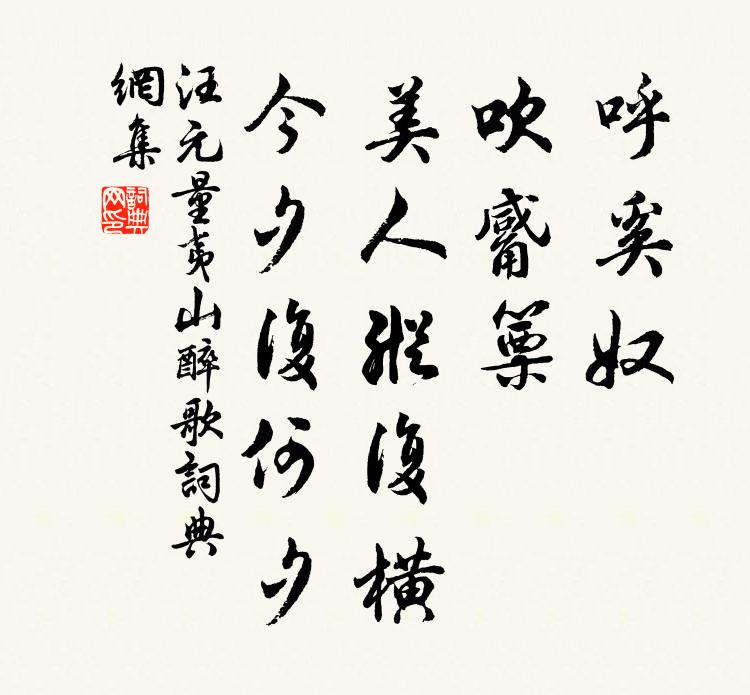 呼奚奴
吹觱篥
美人縱復橫
今夕復何夕
汪元量夷山醉歌詞典
網集
詞典網印